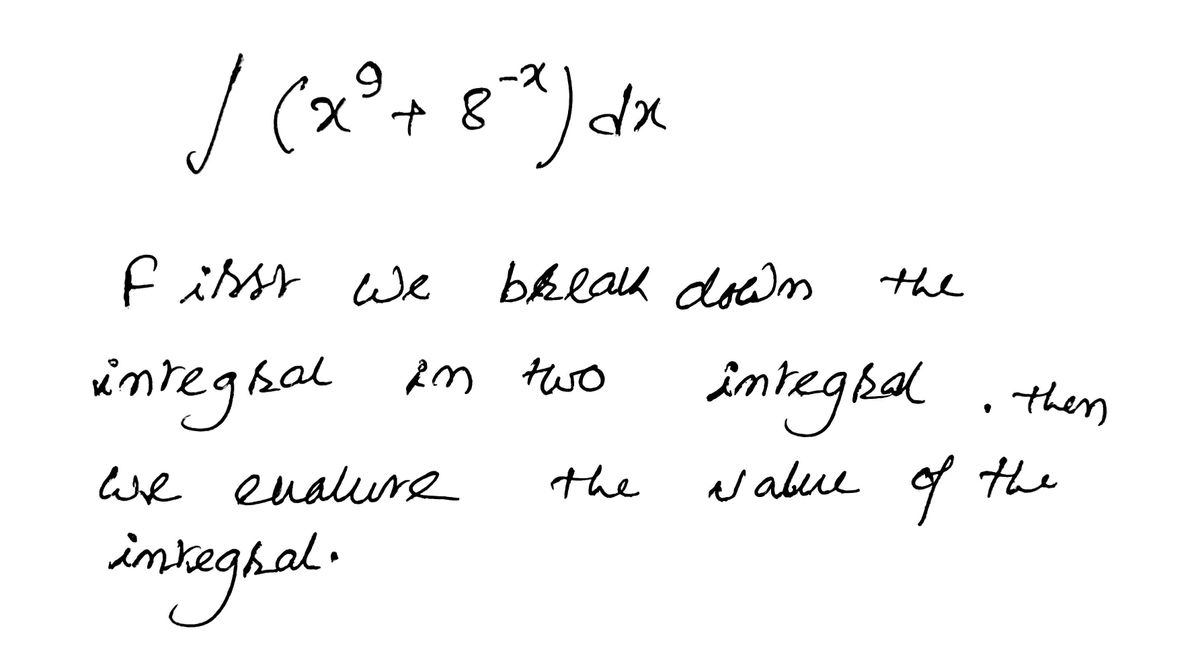 ∫ (x⁹ + 8⁻ˣ) dx
First we break down the
integral in two integral. then
we evaluate the value of the
integral.